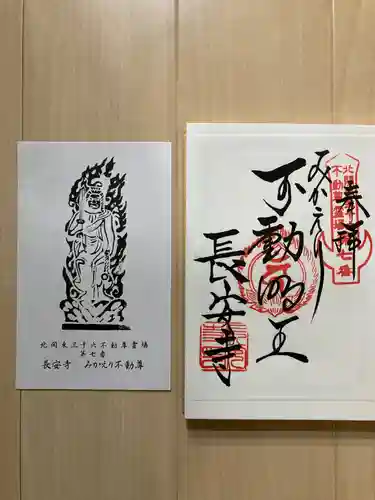 北関東三十六不動尊霊場
第七番
長安寺 みかえり不動尊
奉拝
みかえり
不動明王
長安寺